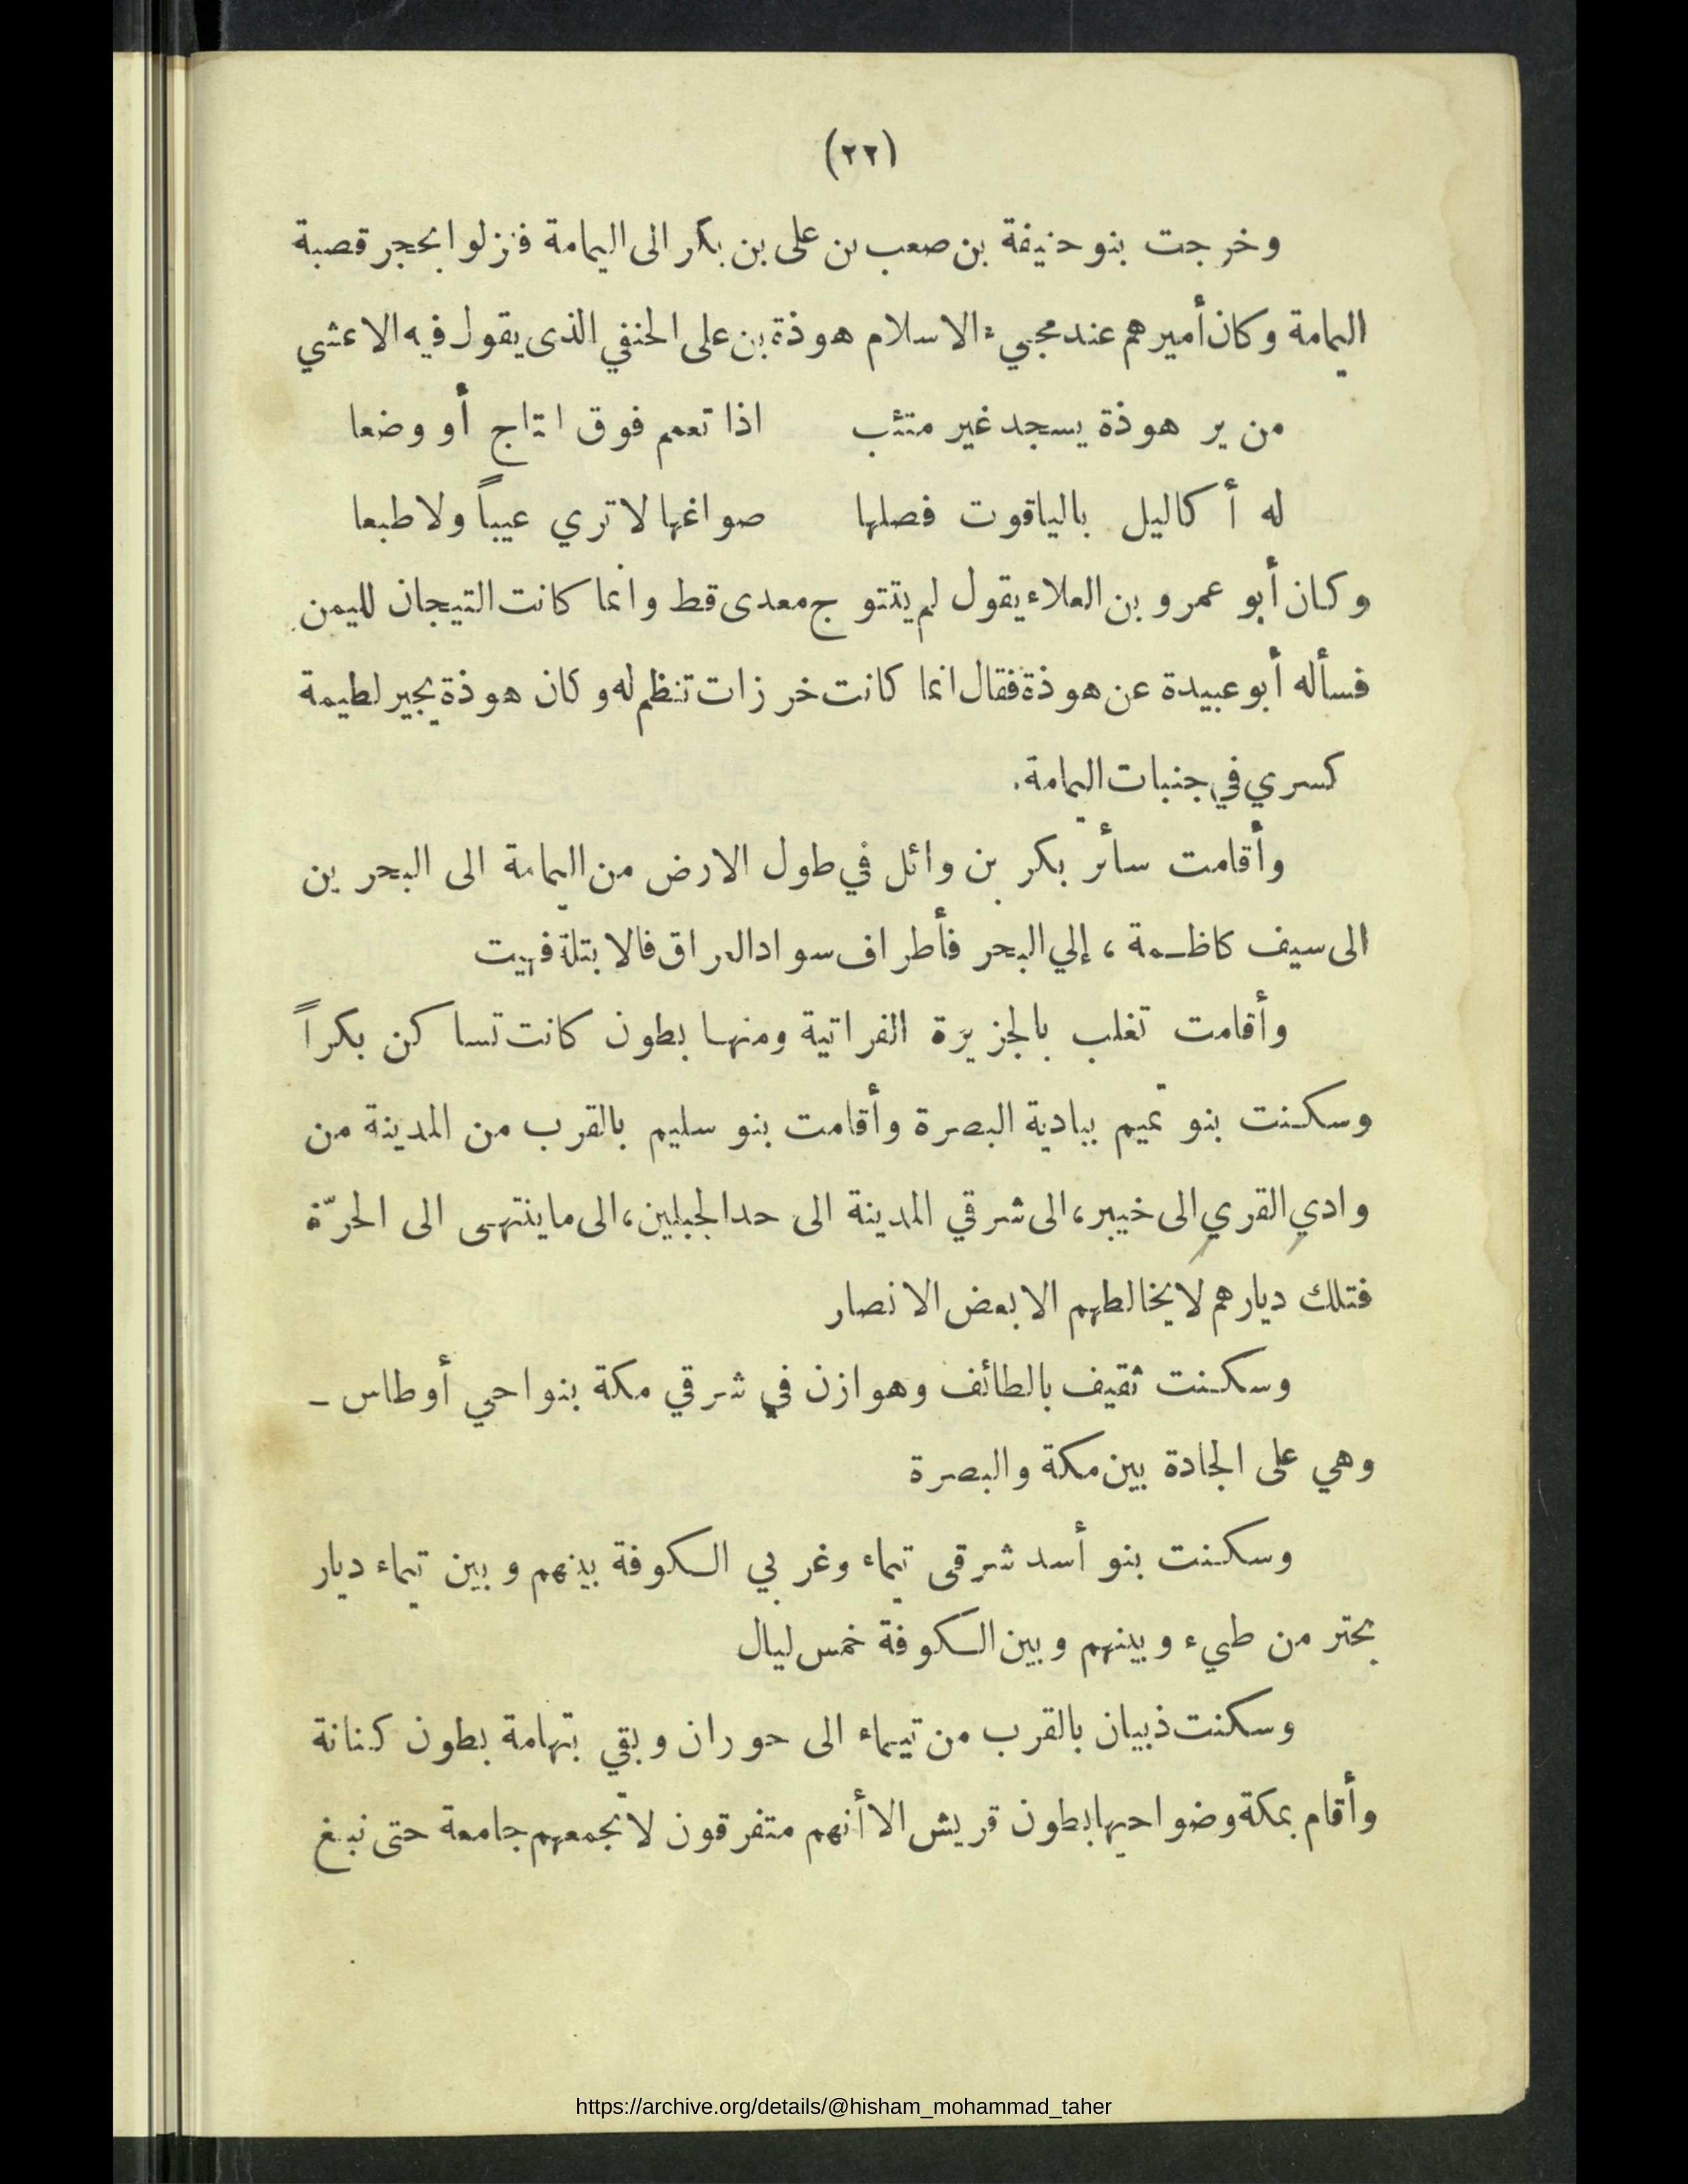 (٢٢)
وخرجت بنو حنيفة بن صعب بن على بن بكر الى اليمامة فنزلوا بحجر قصبة
اليمامة وكان أميرهم عند مجيء الاسلام هوذة بن على الحنفي الذى يقول فيه الاعشي
من ير هوذة يسجد غير متئب اذا تعمم فوق التاج أو وضعا
له أكاليل بالياقوت فصلها صواغها لا تري عيباً ولا طبعا
وكان أبو عمرو بن العلاء يقول لم يتتوج معدى قط وانما كانت التيجان لليمن
فسأله أبو عبيدة عن هوذة فقال انما كانت خرزات تنظم له وكان هوذة يجير لطيمة
كسري في جنبات اليمامة.
وأقامت سائر بكر بن وائل في طول الارض من اليمامة الى البحرين
الى سيف كاظمة ، إلي البحر فأطراف سواد العراق فالابتلة فهيت
وأقامت تغلب بالجزيرة الفراتية ومنها بطون كانت تساكن بكراً
وسكنت بنو تميم ببادية البصرة وأقامت بنو سليم بالقرب من المدينة من
وادي القري الى خيبر، الى شرقي المدينة الى حد الجبلين، الى ما ينتهى الى الحرّة
فتلك ديارهم لا يخالطهم الا بعض الانصار
وسكنت ثقيف بالطائف وهوازن في شرقي مكة بنواحي أوطاس –
وهي على الجادة بين مكة والبصرة
وسكنت بنو أسد شرقى تيماء وغربي الكوفة بينهم وبين تيماء ديار
بحتر من طيء وبينهم وبين الكوفة خمس ليال
وسكنت ذبيان بالقرب من تيماء الى حوران وبقي بتهامة بطون كنانة
وأقام بمكة وضواحيها بطون قريش الا أنهم متفرقون لا تجمعهم جامعة حتى نبغ
https://archive.org/details/@hisham_mohammad_taher